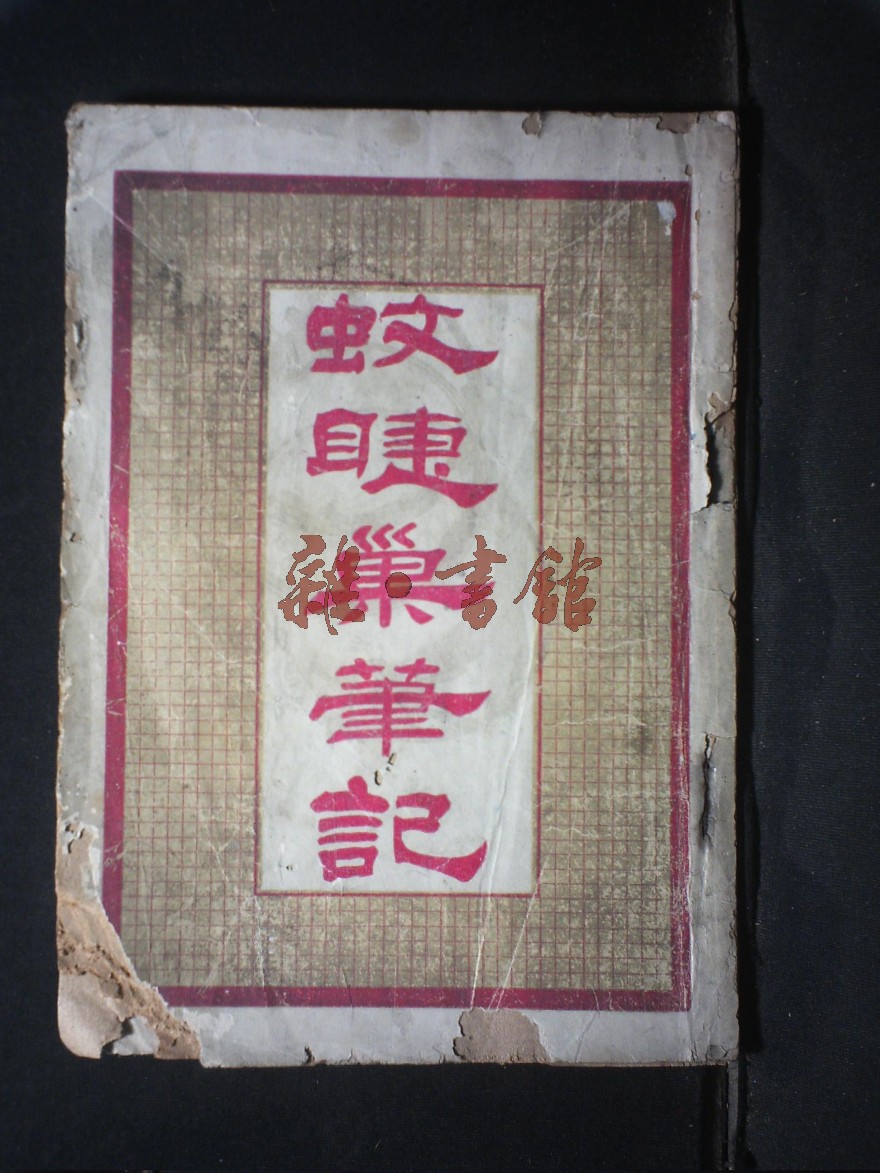 蚊睫巢筆記
雜·書館